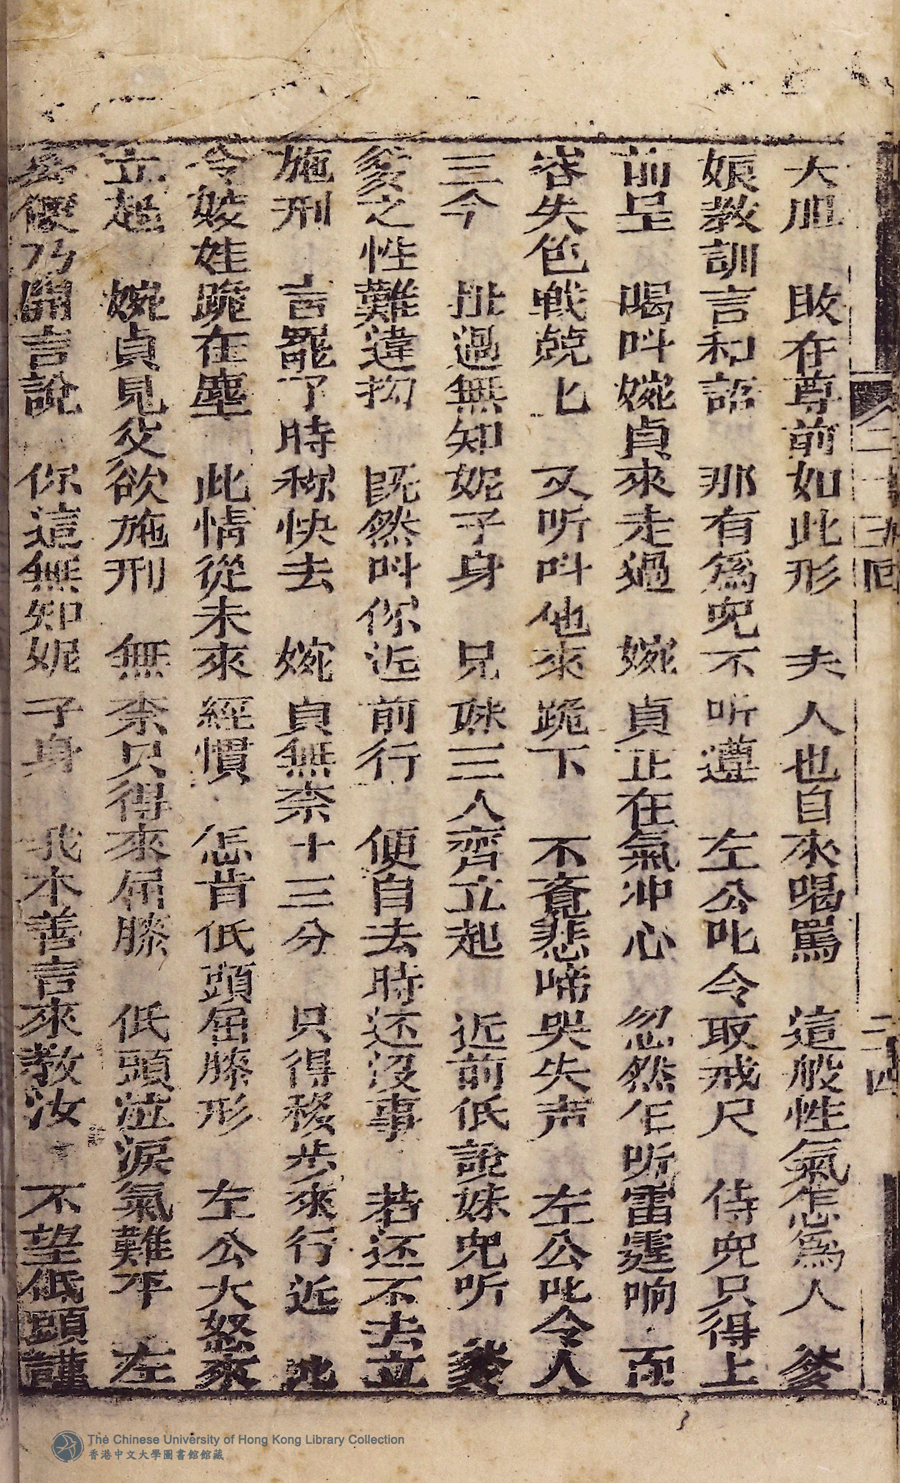 大胆　敢在尊前如此形　夫人也自來喝罵　這般性氣怎爲人　爹
娘教訓言和語　那有爲兒不听遵　左公叱令取戒尺　侍兒只得上
前呈　喝呌婉貞來走過　婉貞正在氣冲心　忽然乍听雷霆响　面
容失色战兢匕　又听呌他來跪下　不覔悲啼哭失声　左公叱令人
三今　扯過無知妮子身　兄妹三人齊立起　近前低說妹兒听　爹
爹之性難違抝　既然呌你近前行　便自去時还沒事　若还不去立
施刑　言罷了時稱快去　婉貞無柰十三分　只得移步來行近　此
令姣娃跪在塵　此情從未來經慣　怎肯低頭屈膝形　左公大怒來
立起　婉貞見父欲施刑　無柰只得來屈膝　低頭泣淚氣難平　左
公便乃開言說　你這無知妮子身　我本善言來教汝　不望低頭謹
二十五回
二十四
The Chinese University of Hong Kong Library Collection
香港中文大學圖書館館藏